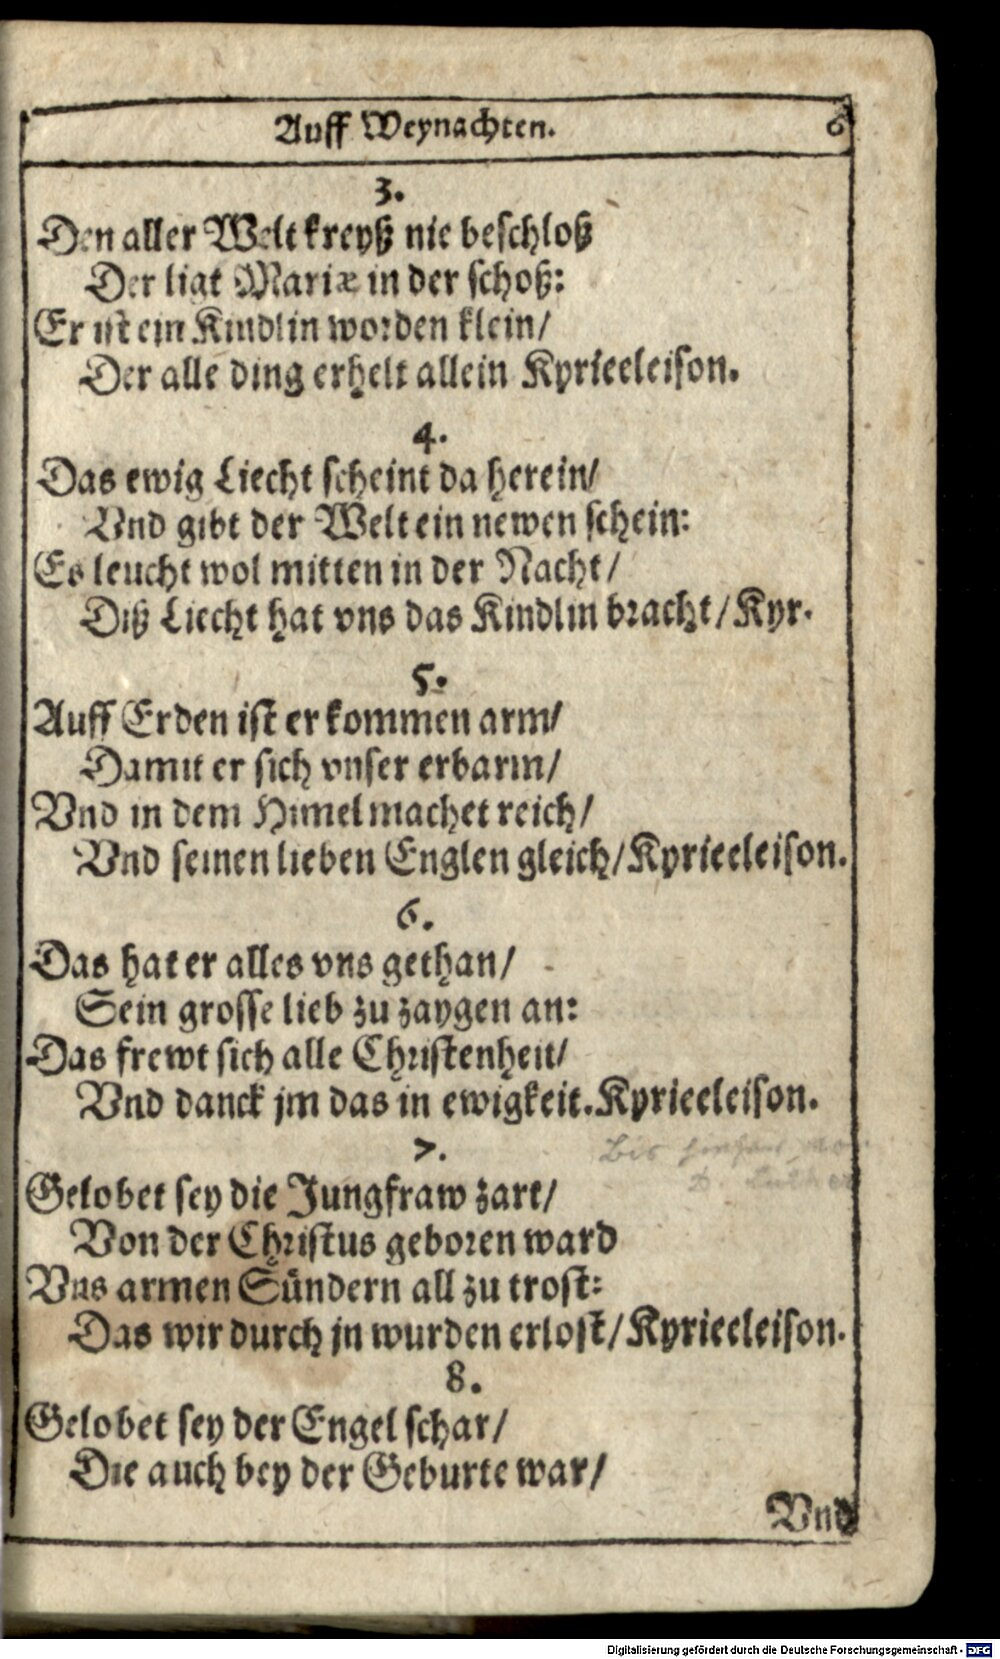 Auff Weynachten. 6
3.
Den aller Welt kreyß nie beschloß
Der ligt Mariæ in der schoß:
Er ist ein Kindlin worden klein/
Der alle ding erhelt allein Kyrieeleison.
4.
Das ewig Liecht scheint da herein/
Vnd gibt der Welt ein newen schein:
Es leucht wol mitten in der Nacht/
Diß Liecht hat vns das Kindlin bracht/ Kyr.
5.
Auff Erden ist er kommen arm/
Damit er sich vnser erbarm/
Vnd in dem Himel machet reich/
Vnd seinen lieben Englen gleich/ Kyrieeleison.
6.
Das hat er alles vns gethan/
Sein grosse lieb zu zaygen an:
Das frewt sich alle Christenheit/
Vnd danck jm das in ewigkeit. Kyrieeleison.
7.
Bis
D. Luther
Gelobet sey die Jungfraw zart/
Von der Christus geboren ward
Vns armen Sündern all zu trost:
Das wir durch jn wurden erlost/ Kyrieeleison.
8.
Gelobet sey der Engel schar/
Die auch bey der Geburte war/
Vnd
Digitalisierung gefördert durch die Deutsche Forschungsgemeinschaft - DFG